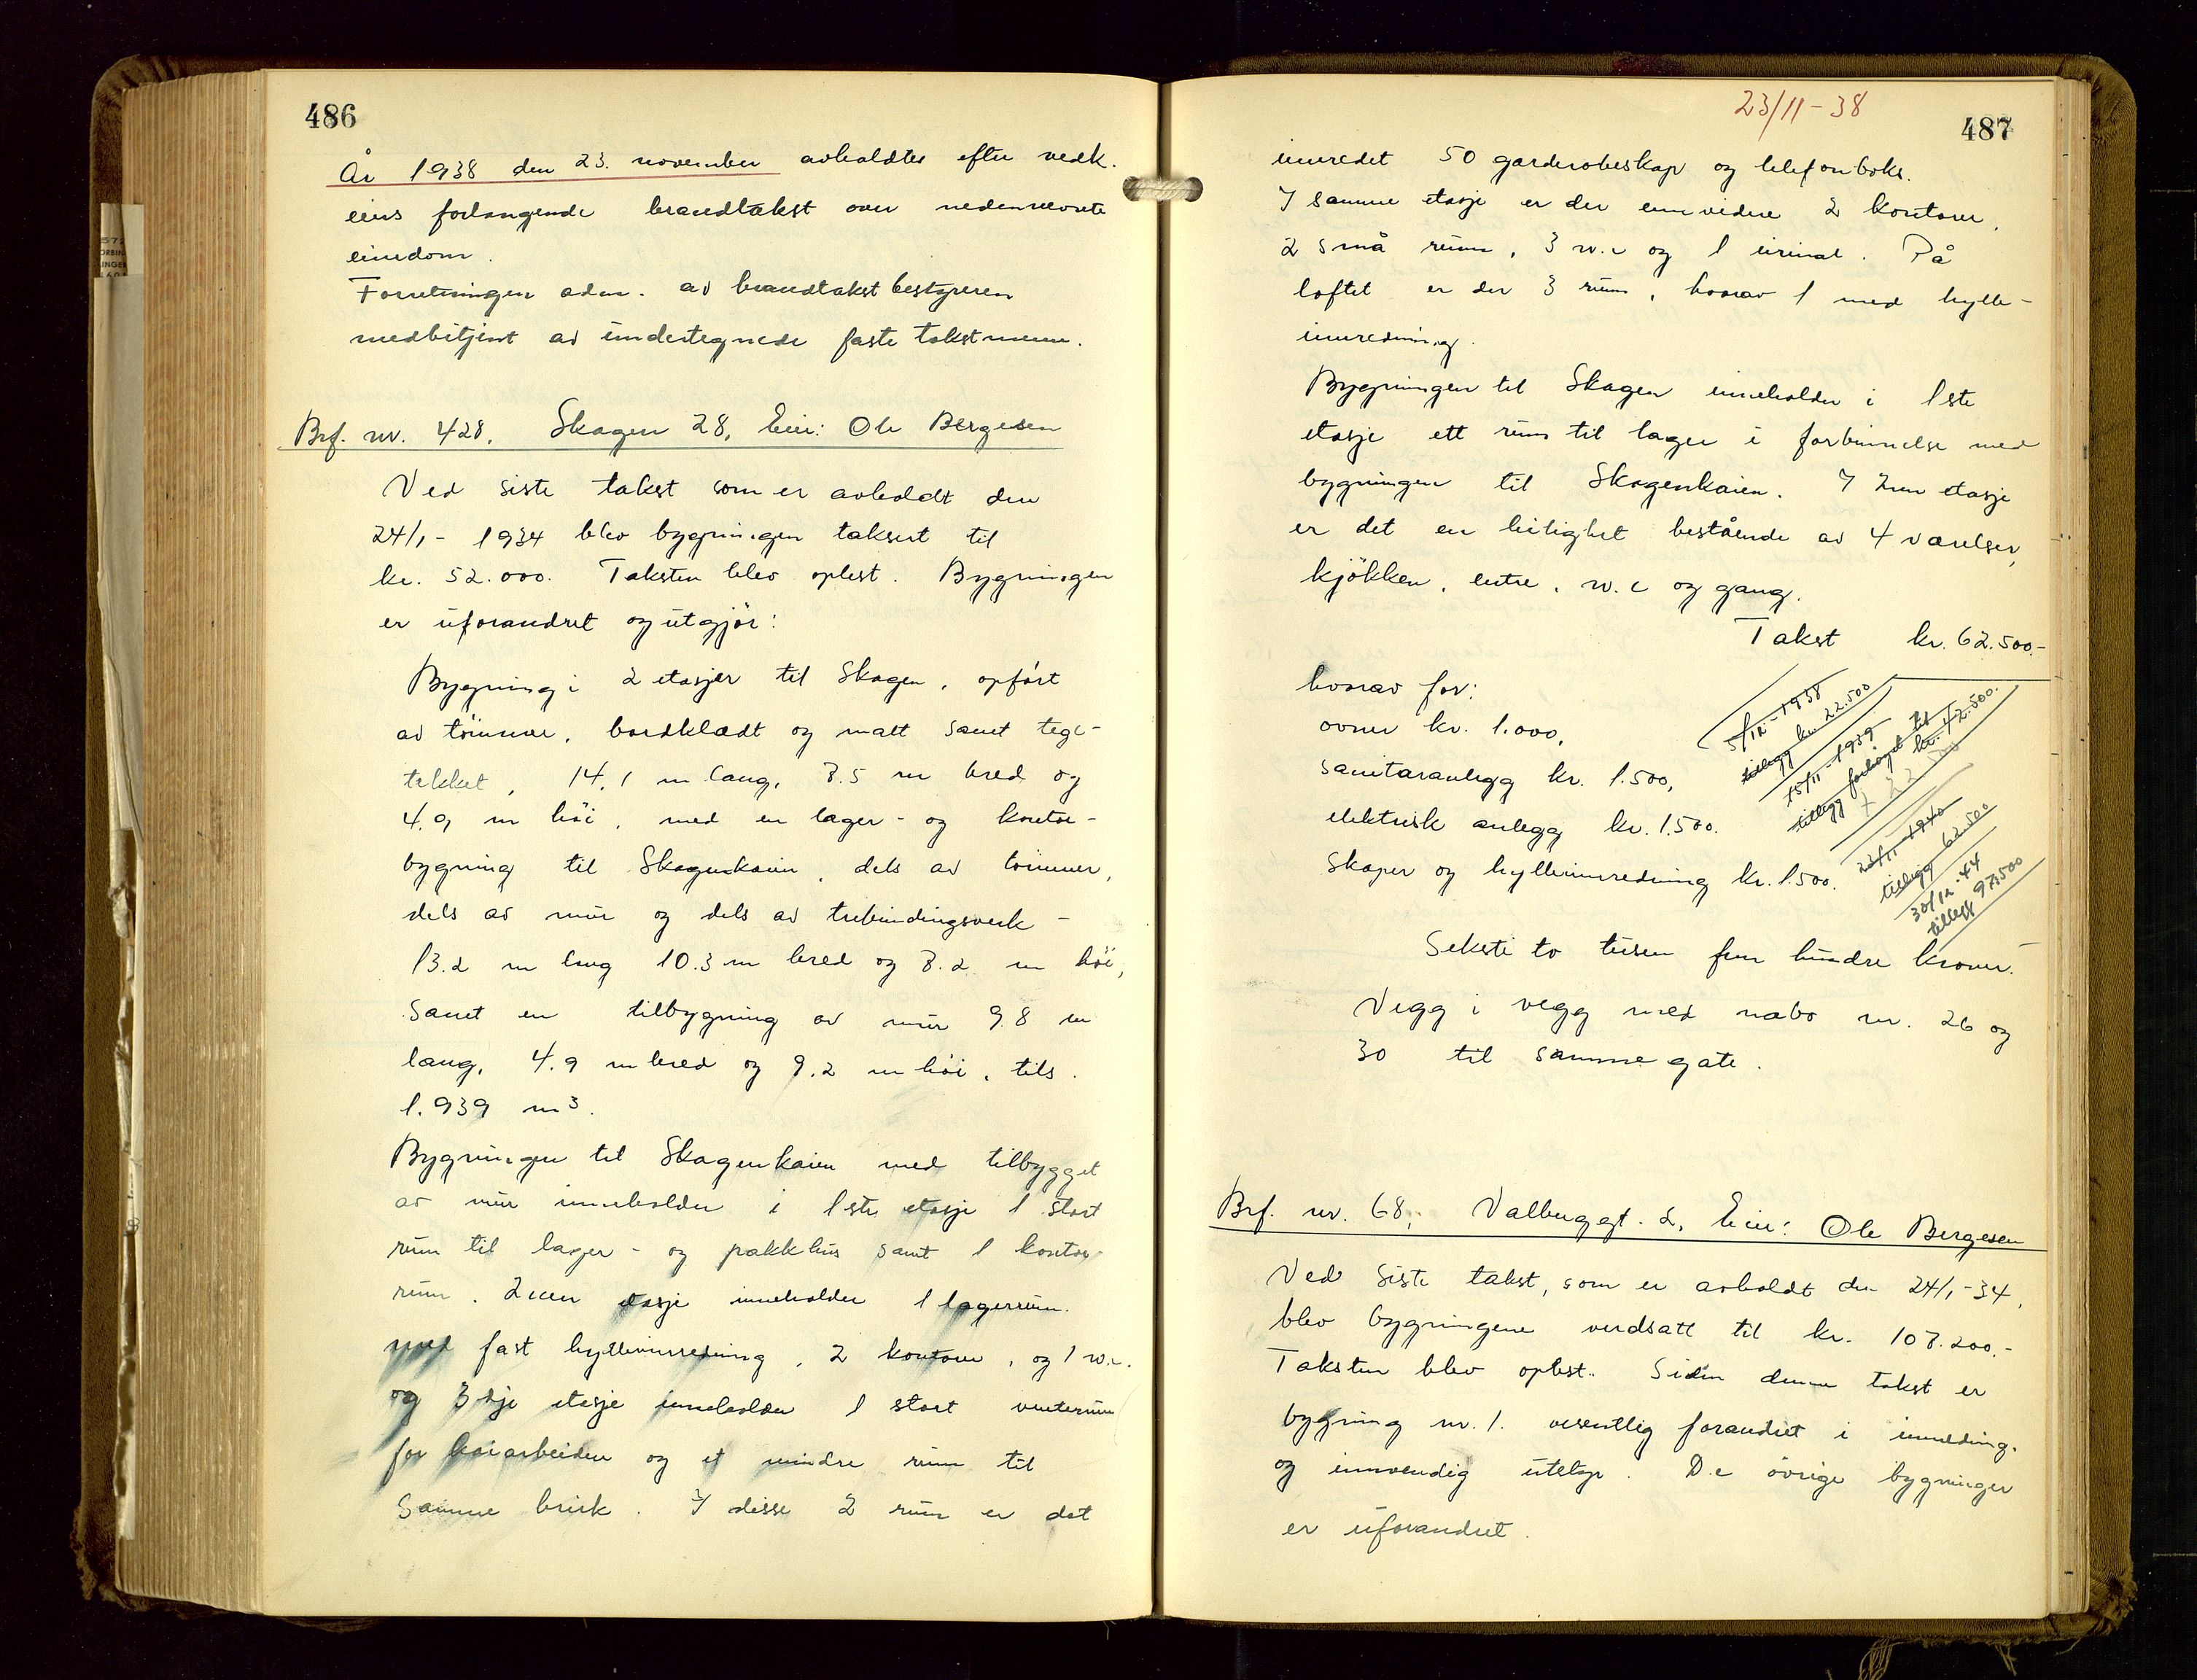 486
År 1938 den 23. november avholdtes efter vedk.
eiers forlangende brandtakst over nedennevnte
eiendom.
Forretningen adm. av brandtakstbestyreren
medbetjent av undertegnede faste takstmenn.
Brf. nr. 428, Skagen 28, Eier: Ole Bergesen
Ved siste takst som er avholdt den
24/1 - 1934 blev bygningen taksert til
kr. 52.000. Taksten blev oplest. Bygningen
er uforandret og utgjör:
Bygning i 2 etasjer til Skagen, opfört
av tömmer, bordklædt og malt samt tegl-
tekket, 14,1 m lang, 8.5 m bred og
4.9 m höi, med en lager- og kontor-
bygning til Skagenkaien, dels av tömmer,
dels av mur og dels av trebindingsverk -
13.2 m lang 10.3 m bred og 8.2 m höi,
samt en tilbygning av mur 9.8 m
lang, 4.9 m bred og 9.2 m höi, tils.
1.939 m3.
Bygningen til Skagenkaien med tilbygget
av mur inneholder i 1ste etasje 1 stort
rum til lager- og pakkhus samt 1 kontor-
rum. 2nen etasje inneholder 1 lagerrum
med fast hylleinnredning, 2 kontorer, og 1 w.c.
og 3dje etasje inneholder 1 stort venterum
for havarbeidere og et mindre rum til
samme bruk. I disse 2 rum er det
23/11-38
487
innredet 50 garderobeskap og telefonboks.
I samme etasje er der ennvidere 2 kontorer,
2 små rum, 3 w.c og 1 urinal. På
loftet er der 3 rum, hvorav 1 med hylle-
innredning.
Bygningen til Skagen inneholder i 1ste
etasje ett rum til lager i forbinnelse med
bygningen til Skagenkaien. I 2nen etasje
er det en leilighet bestående av 4 værelser,
kjökken, entre, w.c og gang.
Takst kr. 62.500.-
hvorav for:
ovner kr. 1.000,
sanitæranlegg kr. 1.500,
elektrisk anlegg kr. 1.500.
Skaper og hylleinnredning kr. 1.500.
5/12 - 1938
tillegg kr. 22.500
15/11 - 1939
tillegg forhöyet til
kr. 42.500.
23/11 - 1940
tillegg 62.500
30/12.-44
tillegg 97.500
Seksti to tusen fem hundre kroner.
Vegg i vegg med nabo nr. 26 og
30 til samme gate.
Brf. nr. 68, Valbuggt. 2, Eier: Ole Bergesen
Ved siste takst, som er avholdt den 24/1-34,
blev bygningene verdsatt til kr. 108.200.-
Taksten blev oplest. Siden denne takst er
bygning nr. 1. vesentlig forandret i inndeling
og innvendig utstyr. De övrige bygninger
er uforandret.